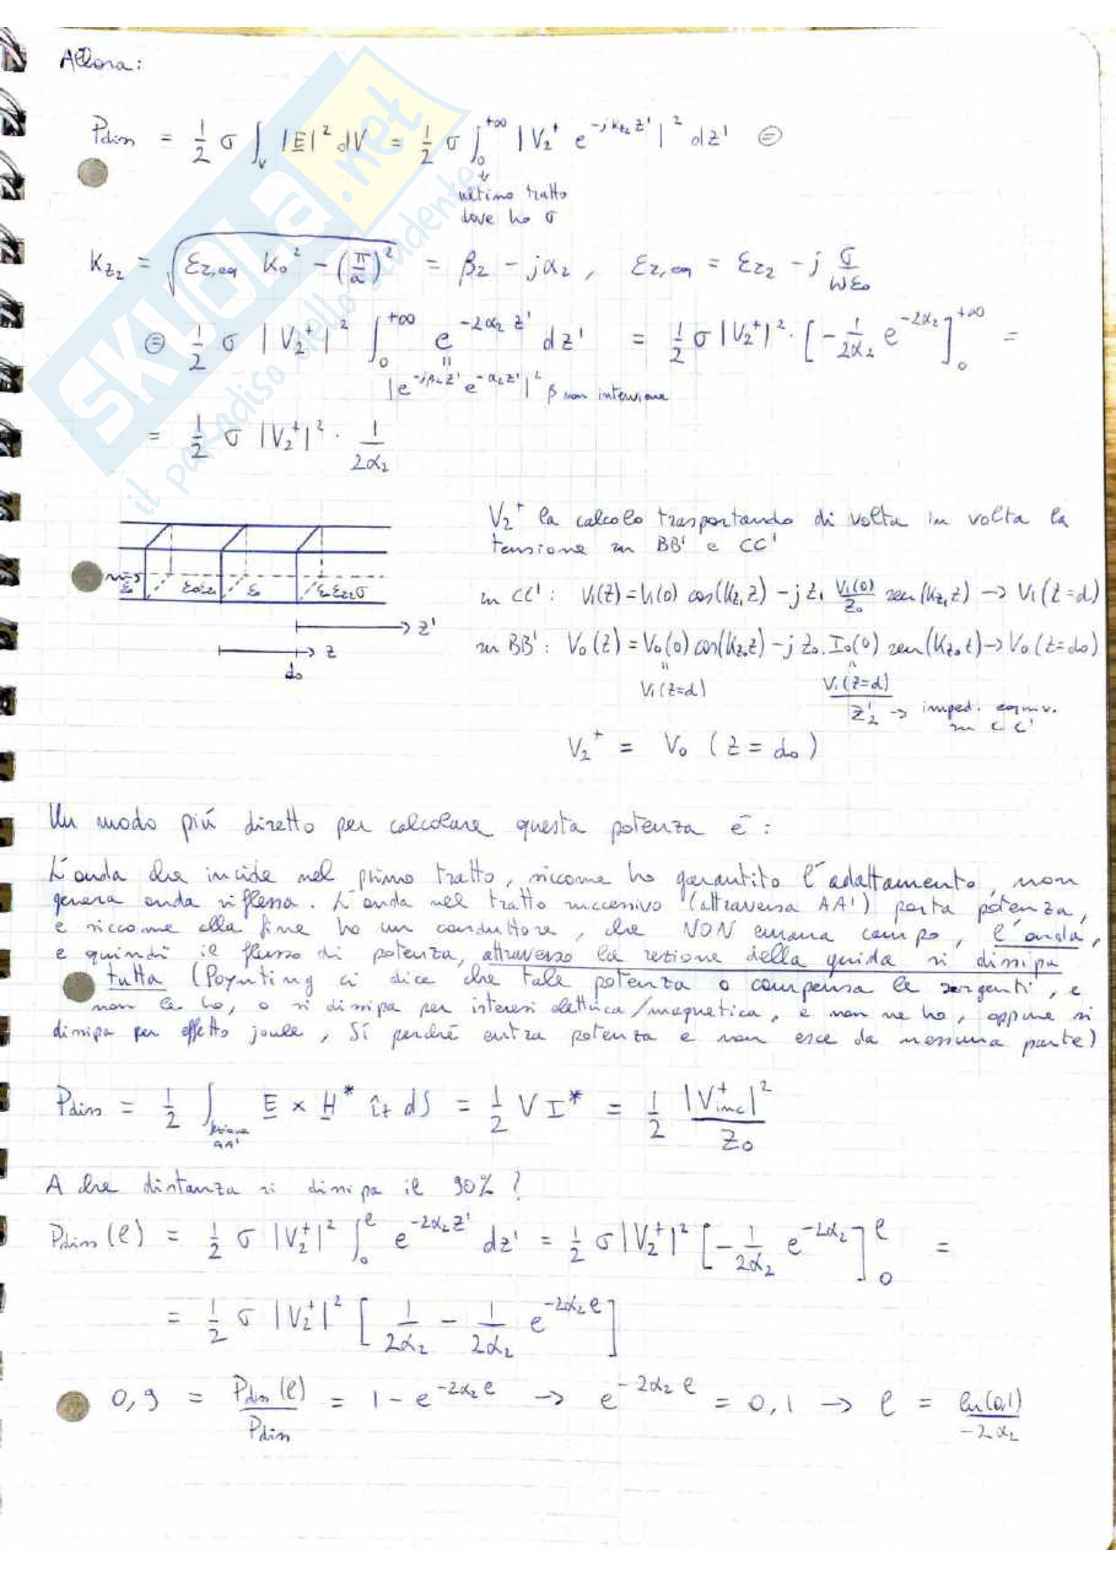 Allora:
P_diss = 1/2 σ ∫_V |E|² dV = 1/2 σ ∫_0^{+∞} |V_2^+ e^{-jk_{z2} z'}|² dz' ⊜
ultimo tratto
dove ho σ
K_{z2} = √(ε_{r,eq} K_0² - (π/a)²) = β_2 - jα_2 , ε_{r,eq} = ε_{r2} - j σ/(ωε_0)
⊜ 1/2 σ |V_2^+|² ∫_0^{+∞} e^{-2α_2 z'} dz' = 1/2 σ |V_2^+|² · [-1/(2α_2) e^{-2α_2}]_0^{+∞} =
|e^{-jβ_2 z'} e^{-α_2 z'}|² β non interviene
= 1/2 σ |V_2^+|² · 1/(2α_2)
V_2^+ la calcolo trasportando di volta in volta la
tensione in BB' e CC'
in CC': V_1(z) = V_1(0) cos(K_{z1} z) - j Z_1 V_1(0)/Z_0 sen(K_{z1} z) → V_1(z=d)
in BB': V_0(z) = V_0(0) cos(K_{z0} z) - j Z_0 · I_0(0) sen(K_{z0} z) → V_0(z=d_0)
V_1(z=d)
V_1(z=d)/Z_2' → imped. equiv.
in CC'
V_2^+ = V_0 (z = d_0)
ε_0
ε_0
z'
z
d_0
Un modo più diretto per calcolare questa potenza è:
L'onda che incide nel primo tratto, siccome ho garantito l'adattamento, non
genera onda riflessa. L'onda nel tratto successivo (attraversa AA') porta potenza,
e siccome alla fine ho un conduttore, che NON emana campo, l'onda,
e quindi il flusso di potenza, attraverso la sezione della guida si dissipa
tutta (Poynting ci dice che tale potenza o compensa le sorgenti, e
non le ho, o si dissipa per isteresi elettrica/magnetica, e non ne ho, oppure si
dissipa per effetto joule, Sí perché entra potenza e non esce da nessuna parte)
P_diss = 1/2 ∫ E × H* i_z dS = 1/2 V I* = 1/2 |V_inc^+|²/Z_0
AA'
A che distanza si dissipa il 90% ?
P_diss(l) = 1/2 σ |V_2^+|² ∫_0^l e^{-2α_2 z'} dz' = 1/2 σ |V_2^+|² [-1/(2α_2) e^{-2α_2}]_0^l =
= 1/2 σ |V_2^+|² [1/(2α_2) - 1/(2α_2) e^{-2α_2 l}]
0,9 = P_diss(l)/P_diss = 1 - e^{-2α_2 l} → e^{-2α_2 l} = 0,1 → l = ln(0,1)/(-2α_2)
SKUOLA.net
il paradiso dello studente